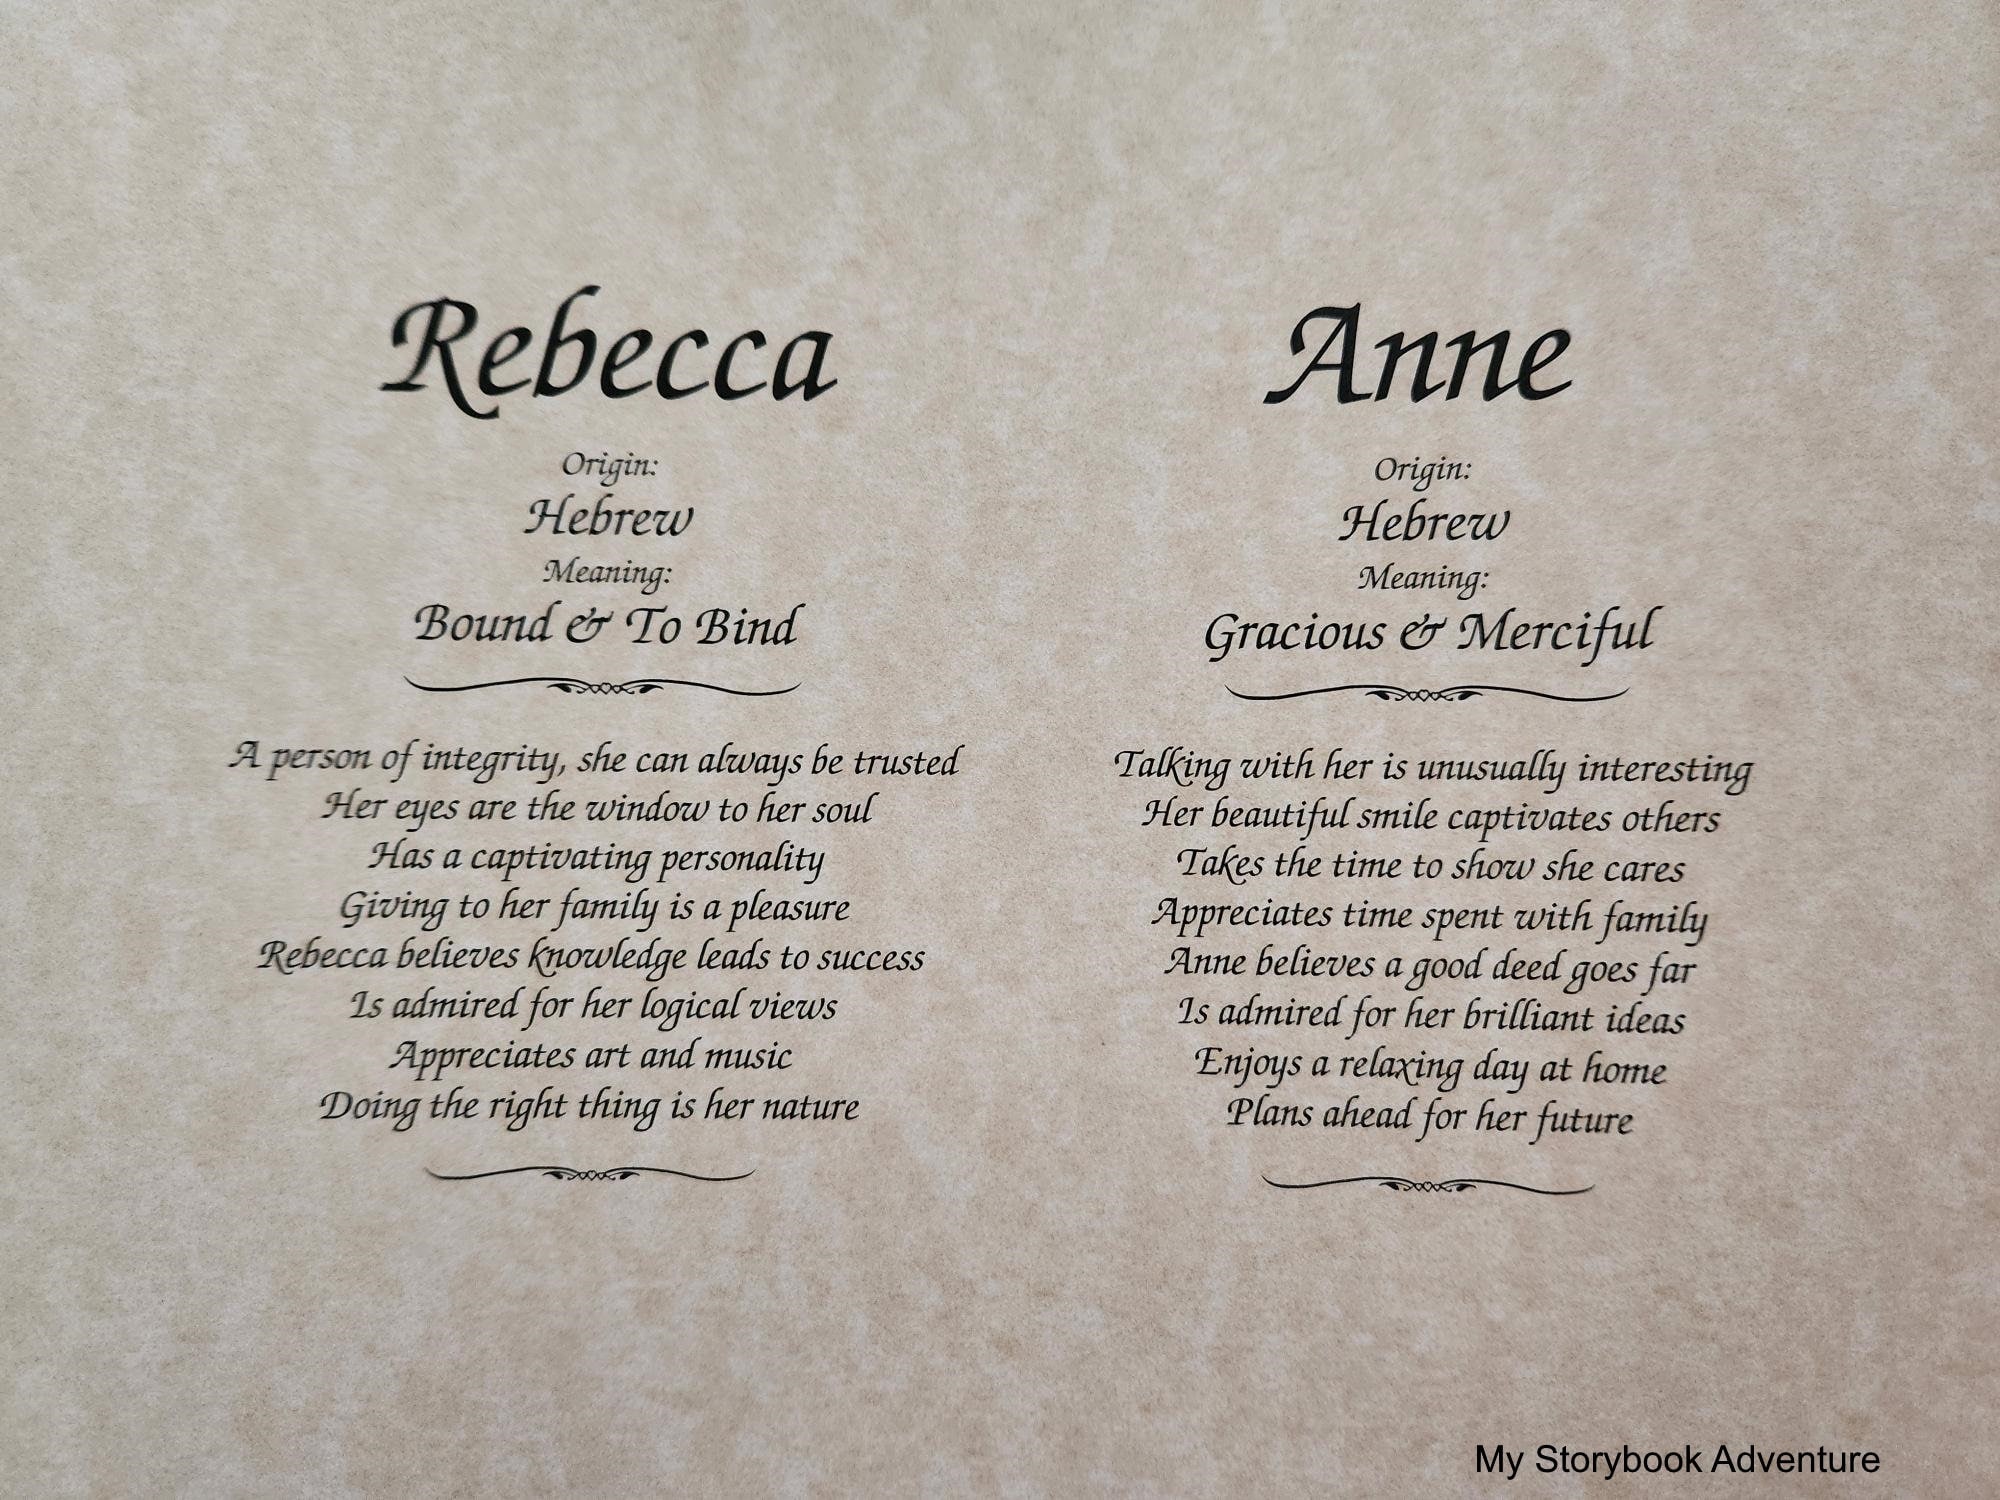 Rebecca
Origin:
Hebrew
Meaning:
Bound & To Bind
A person of integrity, she can always be trusted
Her eyes are the window to her soul
Has a captivating personality
Giving to her family is a pleasure
Rebecca believes knowledge leads to success
Is admired for her logical views
Appreciates art and music
Doing the right thing is her nature
Anne
Origin:
Hebrew
Meaning:
Gracious & Merciful
Talking with her is unusually interesting
Her beautiful smile captivates others
Takes the time to show she cares
Appreciates time spent with family
Anne believes a good deed goes far
Is admired for her brilliant ideas
Enjoys a relaxing day at home
Plans ahead for her future
My Storybook Adventure